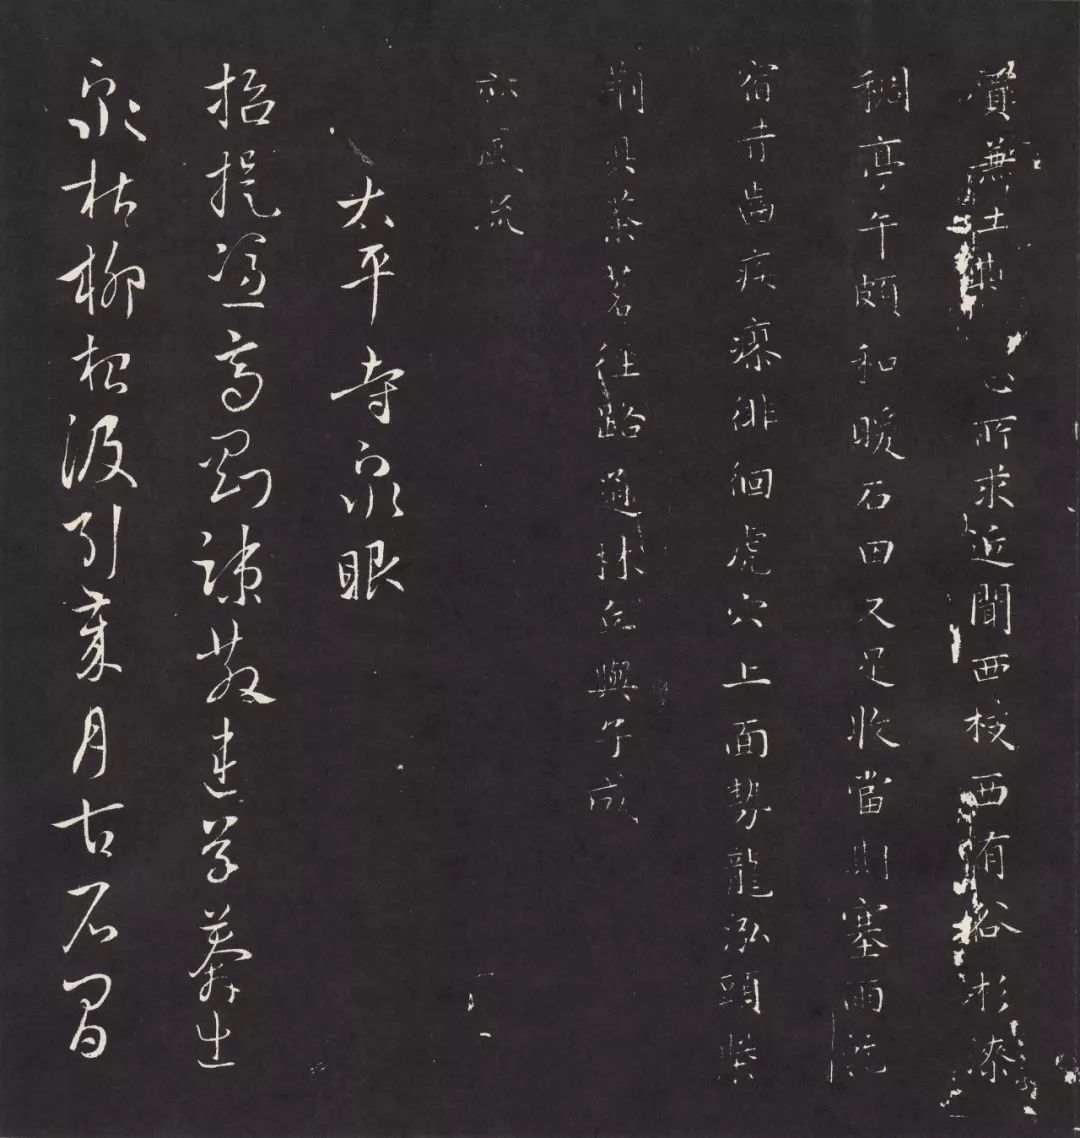 買兼土心所求近聞西枝西有谷杉漆
稠亭午頗和暖石田又足收當則塞雨乾
宿昔齒疾瘳徘徊虎穴上面勢龍泓頭柴
荆具茶茗徑路通林丘與子成
亦風流
太平寺泉眼
招提憑高岡疎散連草莽出
泉枯柳根汲引歲月古石間